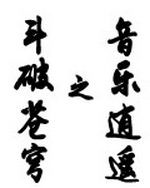 斗破苍穹
之
音乐逍遥